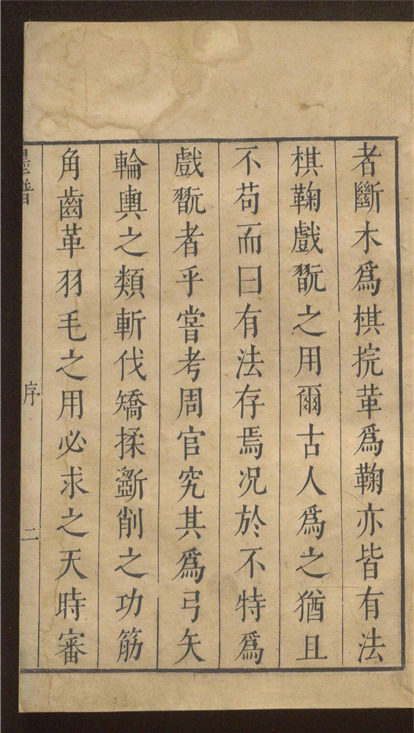 者斷木爲棋捖革爲鞠亦皆有法
棋鞠戲翫之用爾古人爲之猶且
不苟而曰有法存焉况於不特爲
戲翫者乎嘗考周官究其爲弓矢
輪輿之類斬伐矯揉斲削之功筋
角齒革羽毛之用必求之天時審
墨譜
序
二